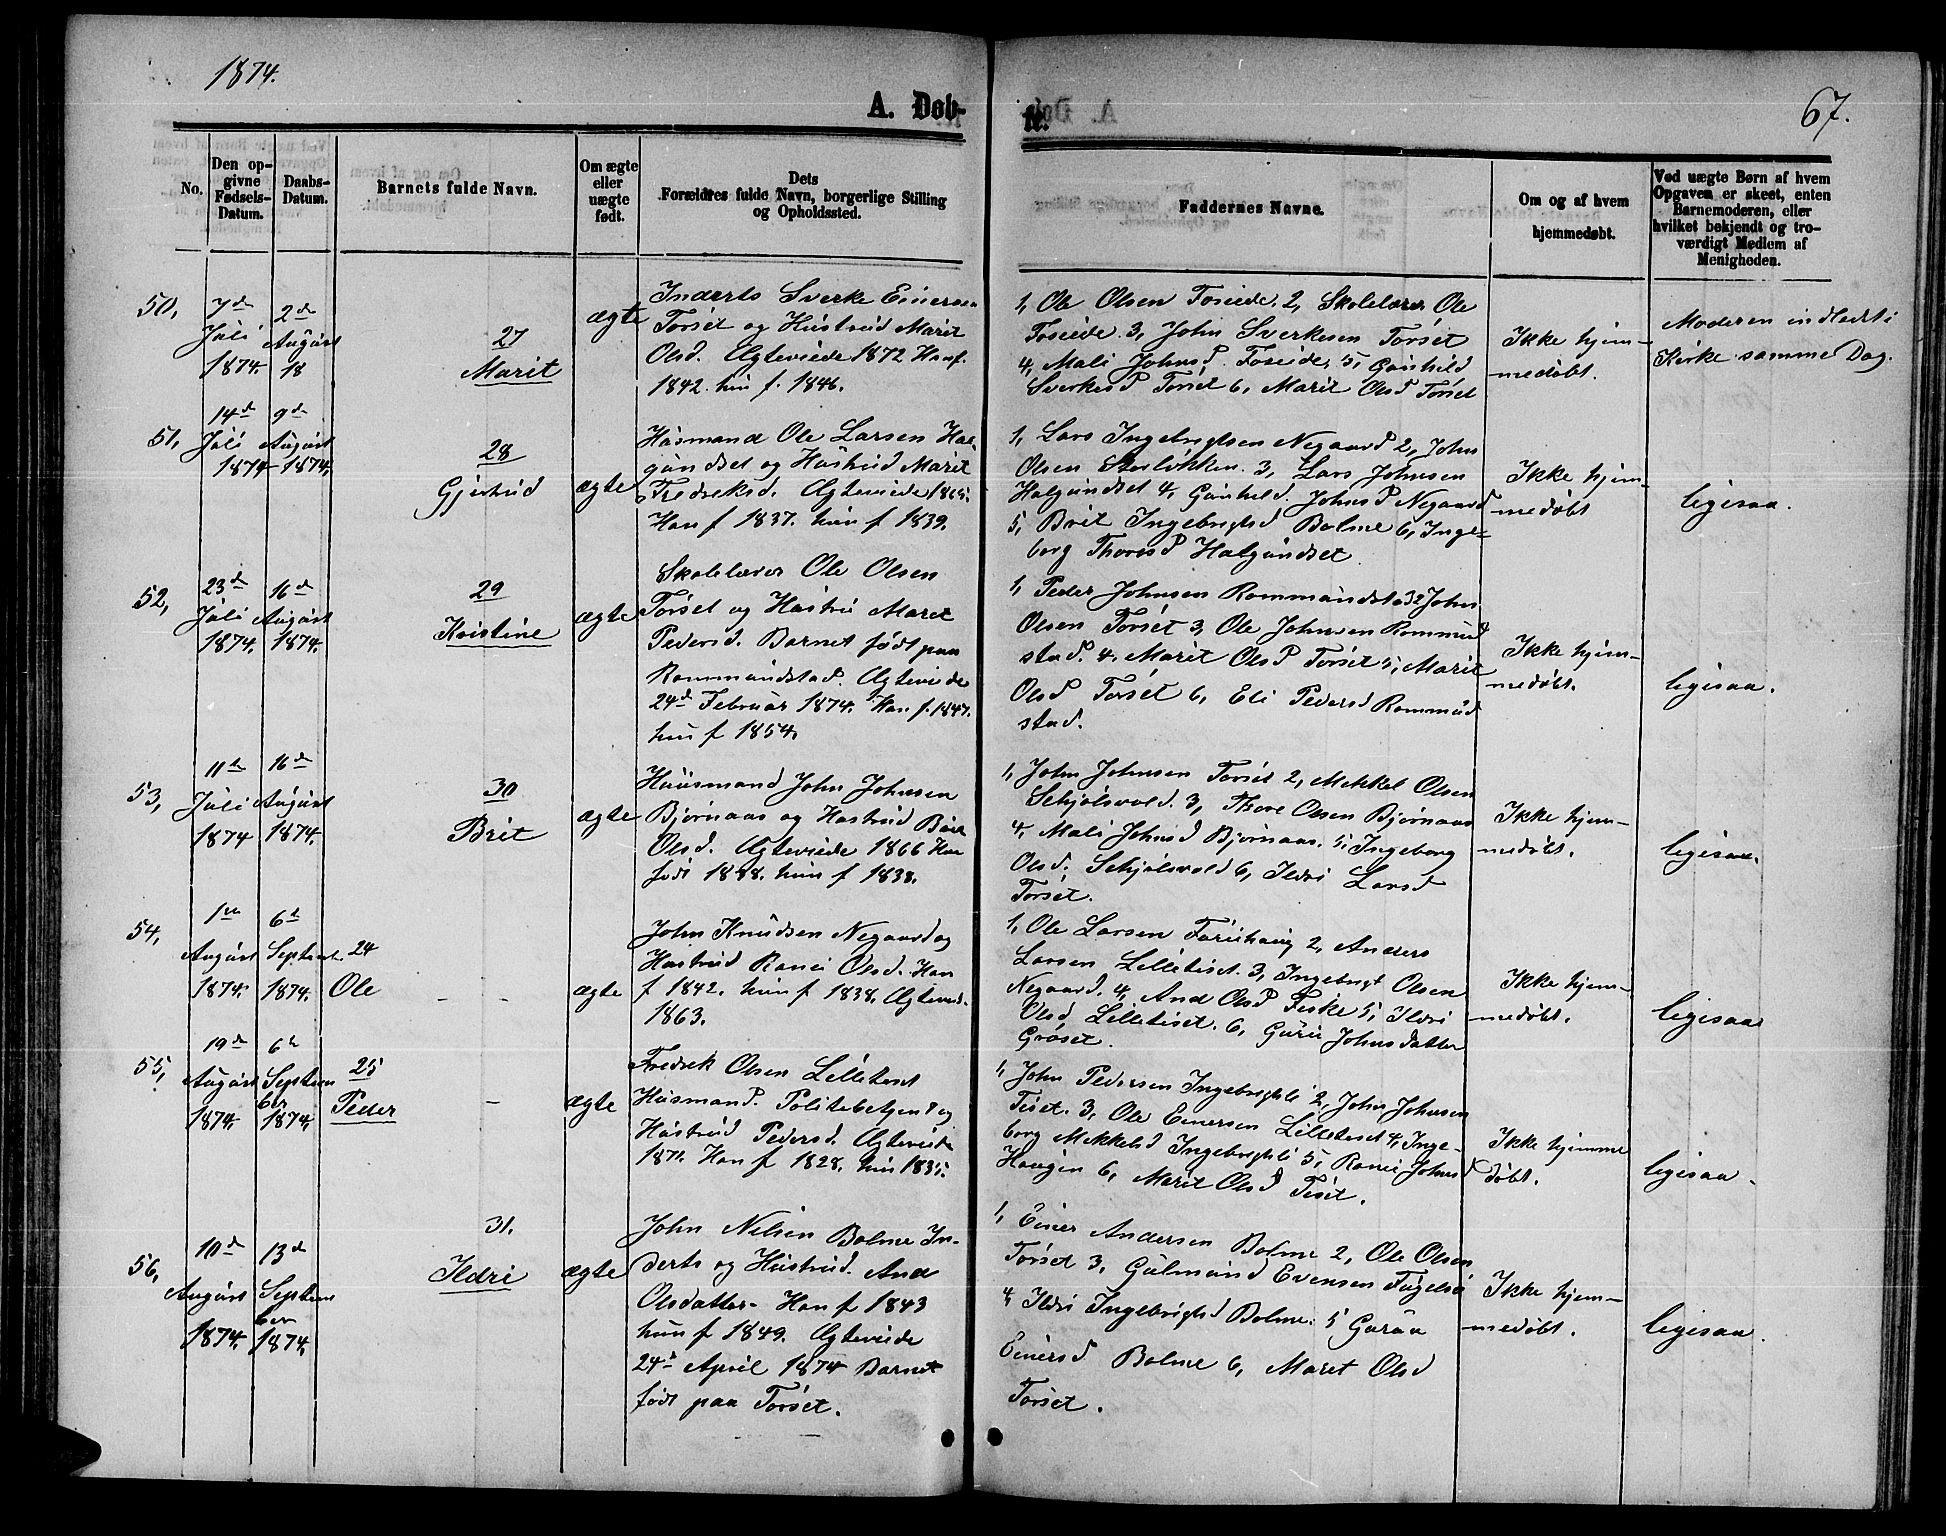 1874.
67.
A. Døb-
te.
No.
Den op-
givne
Fødsels-
Datum.
Daabs-
Datum.
Barnets fulde Navn.
Om ægte
eller
uægte
født.
Dets
Forældres fulde Navn, borgerlige Stilling
og Opholdssted.
Faddernes Navne.
Om og af hvem
hjemmedøbt.
Ved uægte Børn af hvem
Opgaven er skeet, enten
Barnemoderen, eller
hvilket bekjendt og tro-
værdigt Medlem af
Menigheden.
50,
7de
Juli
1874.
2den
August
18
27
Marit
ægte
Inderts Sverke Einersen
Torset og Hustrud Marit
Olsd. Ægteviede 1872 Han f.
1842. hun f. 1846.
1, Ole Olsen Foseide, 2, Skolelærer Ole
Foseide. 3, John Sverkesen Torset
4, Mali Johnsd. Foseide, 5, Gunhild
Sverkesd Torset 6, Marit Olsd Torset
Ikke hjem-
medøbt.
Moderen indledt i
Kirke samme Dag.
51,
14de
Juli
1874
9de
August
1874,
28
Gjertrud
ægte
Husmand Ole Larsen Hal-
gundset og Hustrud Marit
Fredreksd. Ægteviede 1865.
Han f 1837. hun f 1839.
1, Lars Ingebrigtsen Negaard 2, John
Olsen Storløkken. 3, Lars Johnsen
Halgundset 4, Gunhild Johnsd Negaard
5, Brit Ingebrigtsd Bolme 6, Inge-
borg Thoresd Halgundset
Ikke hjem-
medøbt
ligesaa.
52,
23de
Juli
1874.
16de
August
1874.
29
Kristine
ægte
Skolelærer Ole Olsen
Torset og Hustru Maret
Pedersd. Barnet født paa
Rommundstad. Ægteviede
24de Februar 1874. Han f. 1847.
hun f 1854.
1, Peder Johnsen Rommundstad 2, John
Olsen Torset 3, Ole Johnsen Rommund
stad. 4. Marit Olsd Torset 5, Marit
Olsd Torset 6, Eli Pedersd Rommund
stad.
Ikke hjem-
medøbt.
ligesaa.
53,
11te
Juli
1874
16de
August
1874.
30
Brit
ægte
Huusmand John Johnsen
Bjørnaas og Hustrud Brit
Olsd. Ægteviede 1866 Han
født 1838. hun f 1838.
1, John Johnsen Torset 2, Mekkel Olsen
Schjølsvold. 3, Thore Olsen Bjørnaas
4, Mali Johnsd Bjørnaas. 5, Ingeborg
Olsd. Schjølsvold 6, Ildri Larsd
Torset.
Ikke hjem-
medøbt.
ligesaa.
54,
1ste
August
1874.
6te
Septemb.
1874.
24
Ole
- -
ægte
John Knudsen Negaard og
Hustrud Ranei Olsd. Han
f 1842. hun f 1838. Ægteved.
1863.
1, Ole Larsen Faruhaug 2, Anders
Larsen Lilletiset. 3, Ingebrigt Olsen
Negaard. 4, And Olsd Feske 5, Ildri
Olsd Lilletiset. 6, Guru Johnsdatter
Grøset.
Ikke hjem-
medøbt.
ligesaa
55,
19de
August
1874.
6te
Septem
ber
1874,
25
Peder
-
ægte
Fredrek Olsen Lilletiset
Husmand. Politebetjent og
Hustrud Pedersd. Ægteviede
1871. Han f 1828. hun 1835.
1, John Pedersen Ingebrigtli 2, John Johnsen
Tiset. 3, Ole Einersen Lilletiset 4, Inge-
borg Mekkelsd Ingebrigtli 5, Ranei Johnsd
Haugen 6, Marit Olsd Tiset.
Ikke hjemme
døbt.
ligesaa.
56,
10de
August
1874.
13de
Septem
ber
1874.
31.
Ildri
ægte
John Nilsen Bolme In-
derts og Hustrud. And
Olsdatter. Han f 1843
hun f 1849. Ægteviede
24de April 1874 Barnet
født paa Torset.
1, Einer Andersen Bolme 2, Ole Olsen
Torset 3, Gulmund Evensen Fugelsø
4, Ildri Ingebrigtsd Bolme. 5 Guraa
Einersd Bolme 6, Maret Olsd
Torset.
Ikke hjem-
medøbt.
ligesaa.